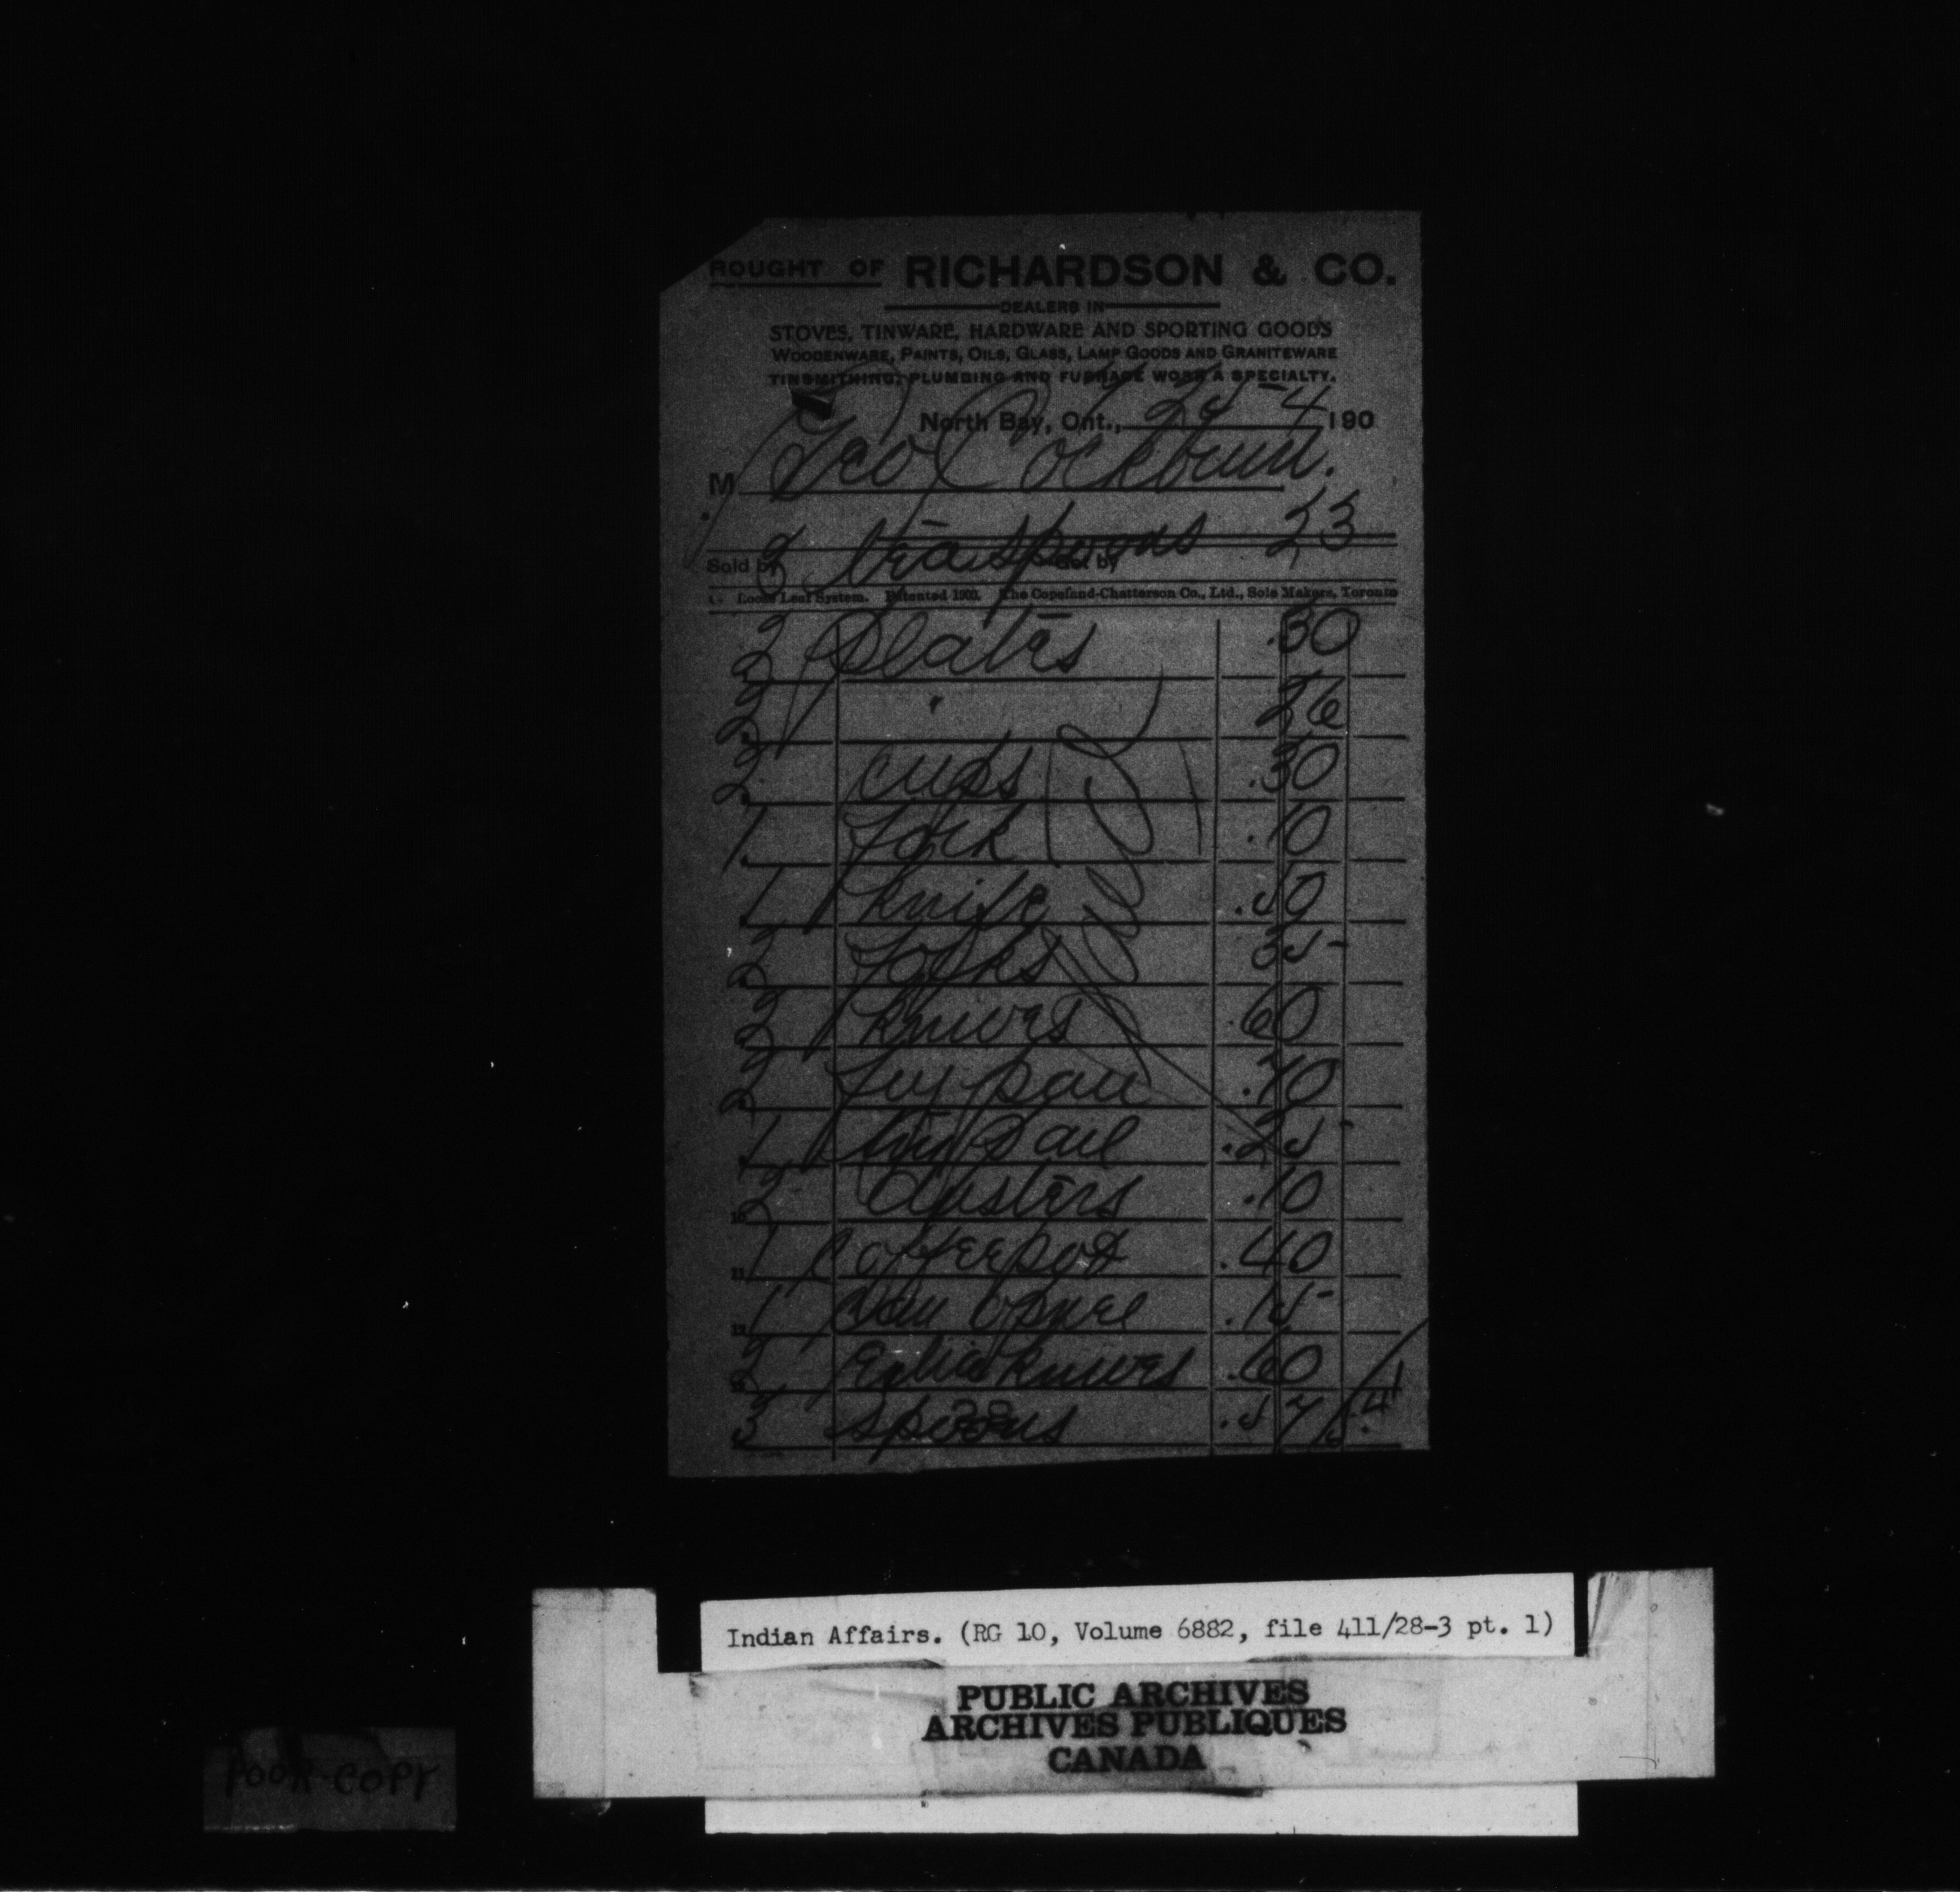 BOUGHT OF RICHARDSON & CO.
DEALERS IN
STOVES, TINWARE, HARDWARE AND SPORTING GOODS
WOODENWARE, PAINTS, OILS, GLASS, LAMP GOODS AND GRANITEWARE
TINSMITHING, PLUMBING AND FURNACE WORK A SPECIALTY.
North Bay, Ont., 25-4 190
M Geo Cockburn.
2 tea spoons 23
Sold by
Loose Leaf System. Patented 1900. The Copeland-Chatterson Co., Ltd., Sole Makers, Toronto
2 Plates .30
2 " 26
2 cups .30
1 Fork .10
1 knife .50
2 Forks 35
2 knives .60
2 Fry pan .70
1 tin Pail .25
2 Dusters .10
1 Coffee pot .40
1 Can Opnel .15
2 knives .60
3 spoons .57
38
Indian Affairs. (RG 10, Volume 6882, file 411/28-3 pt. 1)
PUBLIC ARCHIVES
ARCHIVES PUBLIQUES
CANADA
POOR COPY